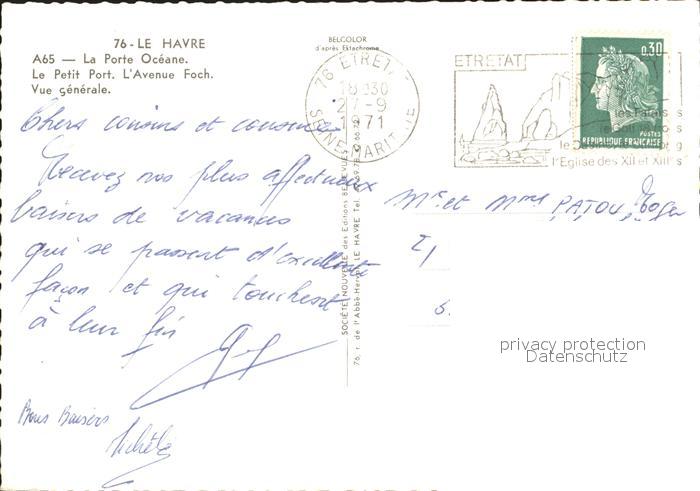 76 - LE HAVRE
A65 — La Porte Océane.
Le Petit Port. L'Avenue Foch.
Vue générale.
BELCOLOR
d'après Ektachrome
76 ETRETAT
18H30
27-9
1971
SEINE MARITIME
ETRETAT
0,30
POSTES
REPUBLIQUE FRANÇAISE
les Falaises
le Golf
le
l'Eglise des XII et XIII s
Chers cousins et cousine
Recevez nos plus affectueux
baisers de vacances
qui se passent d'excellente
façon et qui touchent
à leur fin
Bons Baisers
Michèle
SOCIÉTÉ NOUVELLE des Editions BELLEVUES
76, r. de l'Abbé-Herval LE HAVRE Tél.
Mr et Mme PATOU Roger
privacy protection
Datenschutz